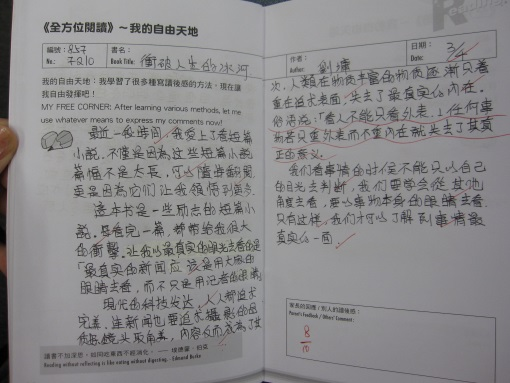 《全方位閱讀》～我的自由天地
編號：857
書名：
No.: 7210
Book Title: 衝破人生的冰河
我的自由天地：我學習了很多種寫讀後感的方法，現在讓
我自由發揮吧！
MY FREE CORNER: After learning various methods, let me
use whatever means to express my comments now!
最近一段時間，我愛上了看短篇
小說，不僅是因為这些短篇小說
篇幅不是太長，可以随意翻閱，
更是因為它们让我領悟到更多
這本书是一些励志的短篇小
說，每看完一篇，都带给我很大
的衝擊。让我以最真实的眼光去看的是
「最真实的新闻应該是用大眾的
眼睛去看，而不只是用记者的眼睛
現代的科技发达，人人都追求
完美，連新闻也要追求攝影的品
質与鏡头取角美，内容反而成為了其
讀書不加深思，如同吃東西不經消化。── 埃德蒙‧伯克
Reading without reflecting is like eating without digesting. - Edmund Burke
作者：
Author: 劉墉
日期：
Date: 3/4
次。人類在物质丰富的物质逐漸只着
重在追求表面，失去了最真实的内在。
俗语說：「看人不能只看外表」，任何事
物若只重外表而不重内在就失去了其真
正的意义。
我们看事情的时候不能只以自己
的目光去判断，我们要学会從其他
角度去看，要以事物本身的眼睛去看
只有这样，我们才可以了解到事情最
真实的一面。
家長的回應 / 別人的讀後感：
Parent's Feedback / Others' Comment:
8
10